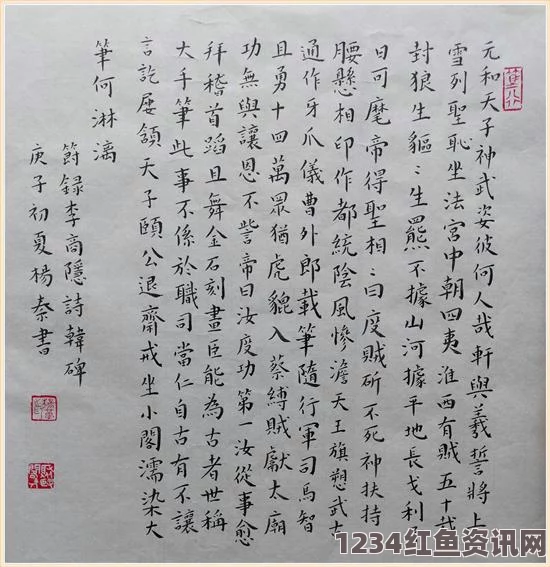 元和天子神武姿彼何人哉軒與羲誓將上
雪列聖恥坐法宮中朝四夷淮西有賊五十載
封狼生貙〻生羆不據山河據平地長戈利
日可麾帝得聖相〻曰度賊斫不死神扶持
腰懸相印作都統陰風慘澹天王旗愬武古
通作牙爪儀曹外郎載筆隨行軍司馬智
且勇十四萬眾猶虎貔入蔡縛賊獻太廟
功無與讓恩不訾帝曰汝度功第一汝從事愈
拜稽首蹈且舞金石刻畫臣能為古者世稱
大手筆此事不係於職司當仁自古有不讓
言訖屢頷天子頤公退齋戒坐小閣濡染大
筆何淋漓
節錄李商隱詩韓碑
庚子初夏楊泰書
1234红鱼资讯网